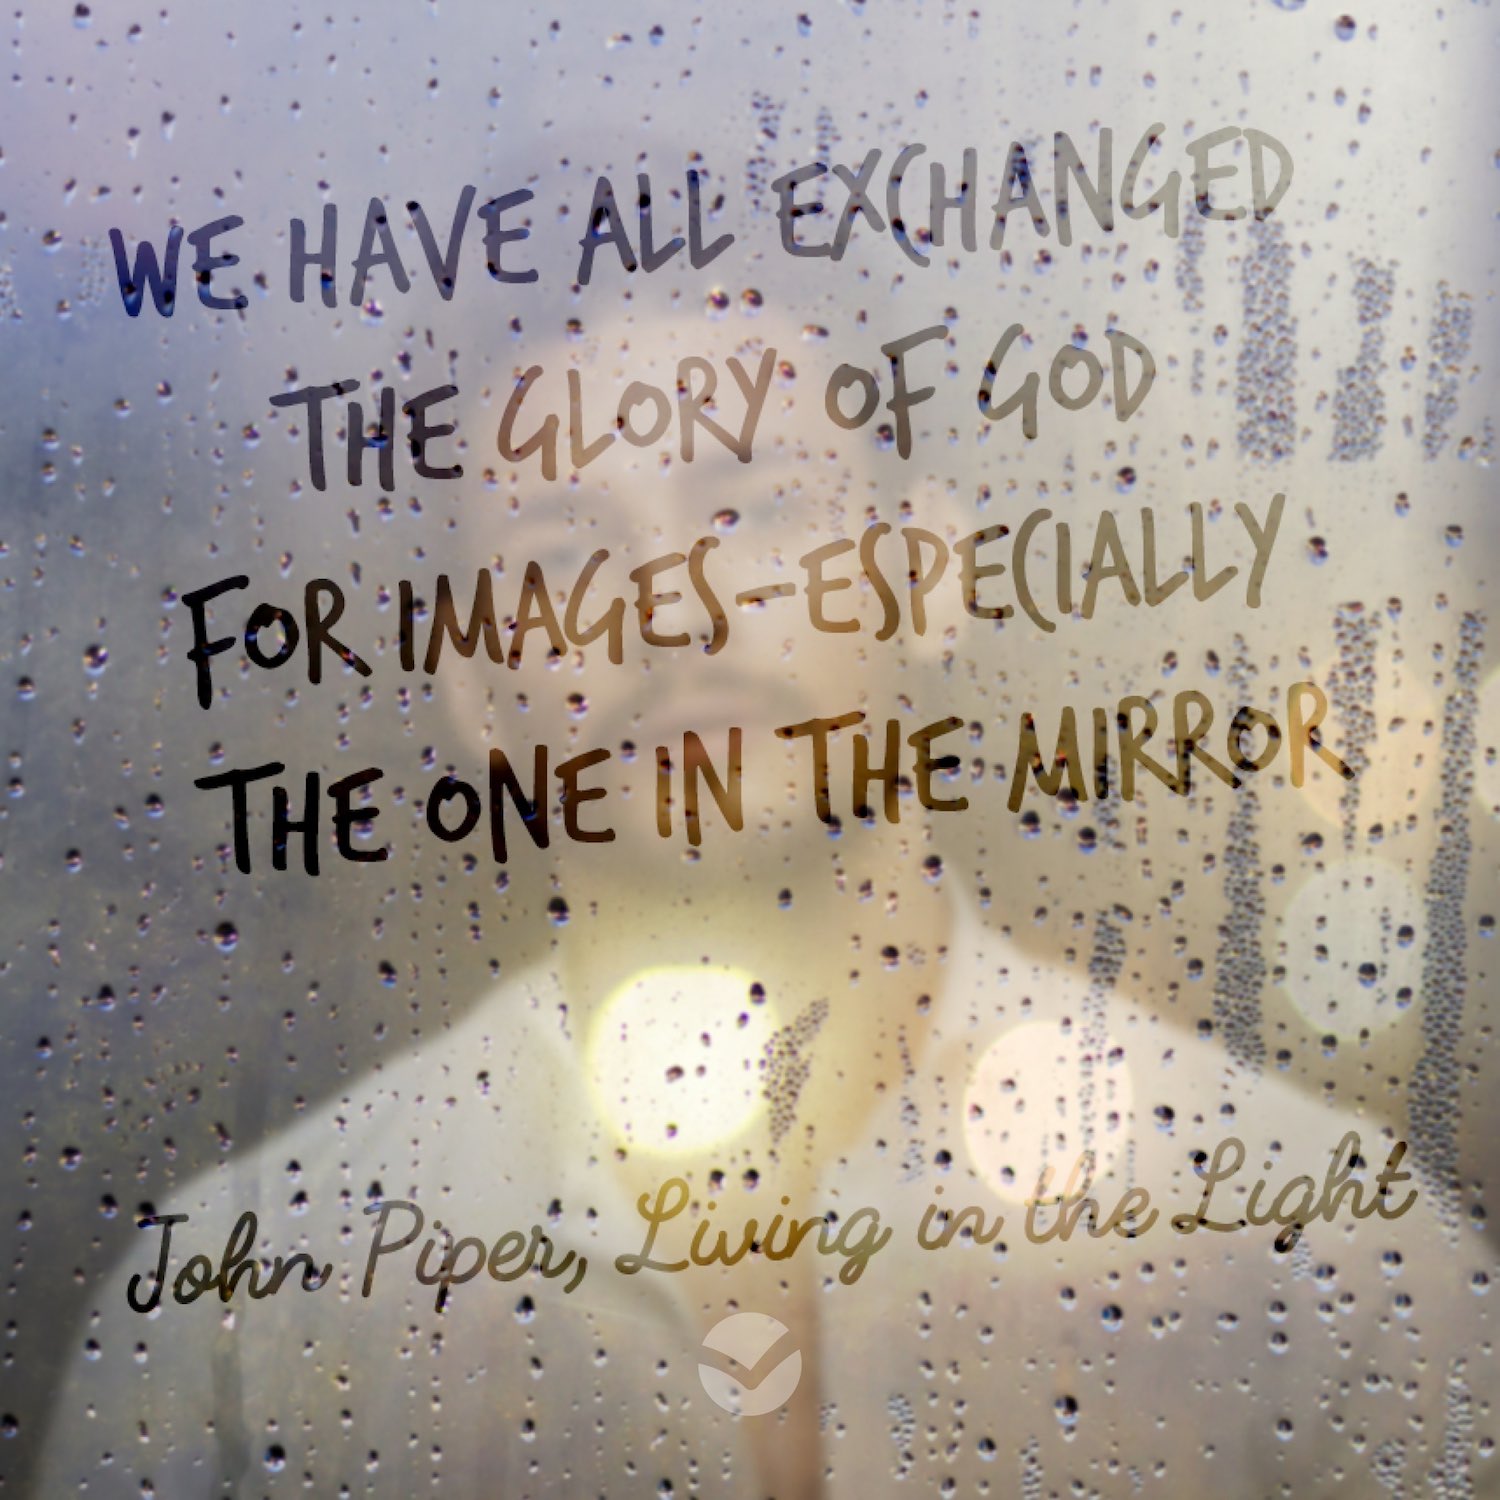 WE HAVE ALL EXCHANGED
THE GLORY OF GOD
FOR IMAGES—ESPECIALLY
THE ONE IN THE MIRROR
John Piper, Living in the Light